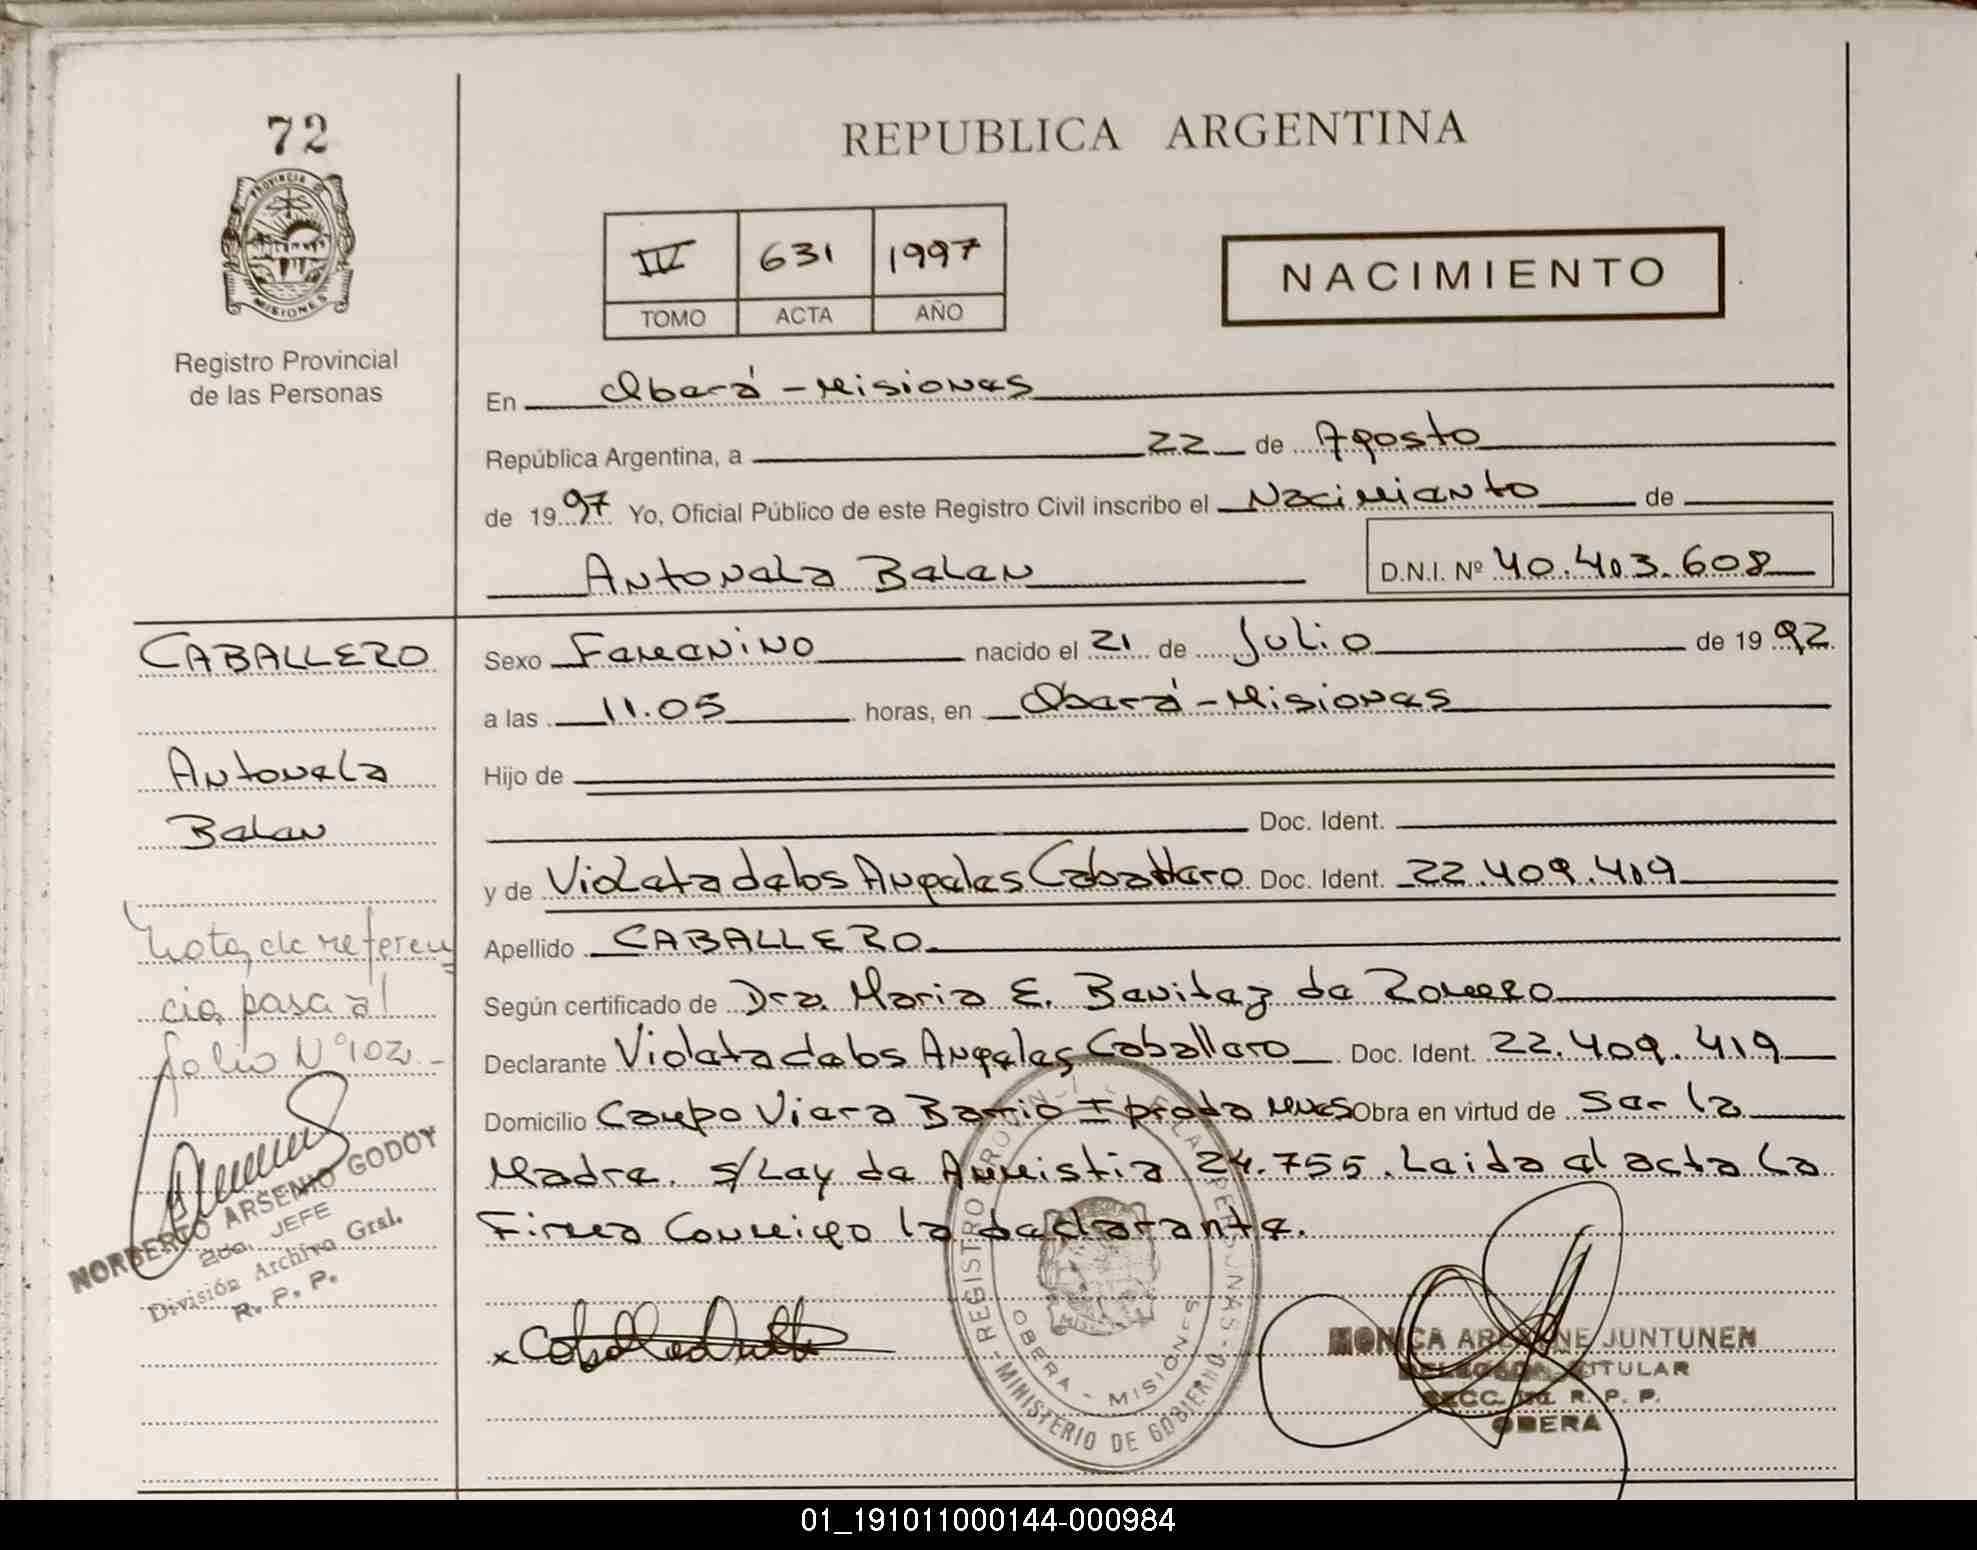 72
PROVINCIA DE
MISIONES
Registro Provincial
de las Personas
REPUBLICA ARGENTINA
IV 631 1997
TOMO ACTA AÑO
NACIMIENTO
En Oberá - Misiones
República Argentina, a 22 de Agosto
de 1997 Yo, Oficial Público de este Registro Civil inscribo el Nacimiento de
Antonela Belen D.N.I. Nº 40.403.608
CABALLERO
Antonela
Belen
Nota de referen
cia pasa al
folio Nº 102 -
NORBERTO ARSENIO GODOY
2do. JEFE
División Archivo Gral.
R. P. P.
Sexo Femenino nacido el 21 de Julio de 1992
a las 11.05 horas, en Oberá - Misiones
Hijo de
Doc. Ident.
y de Violeta de los Angeles Caballero Doc. Ident. 22.409.419
Apellido CABALLERO
Según certificado de Dra. Maria E. Benitez de Romero
Declarante Violeta de los Angeles Caballero Doc. Ident. 22.409.419
Domicilio Campo Viera Barrio Obra en virtud de Ser la
Madre. s/Ley de Amnistia 24.755. Leida el acta la
Firma Conmigo la declarante.
REGISTRO PROVINCIAL DE LAS PERSONAS - MINISTERIO DE GOBIERNO -
OBERA - MISIONES
MONICA JUNTUNEN
DELEGADA TITULAR
SECC. R. P. P.
OBERA
01_191011000144-000984